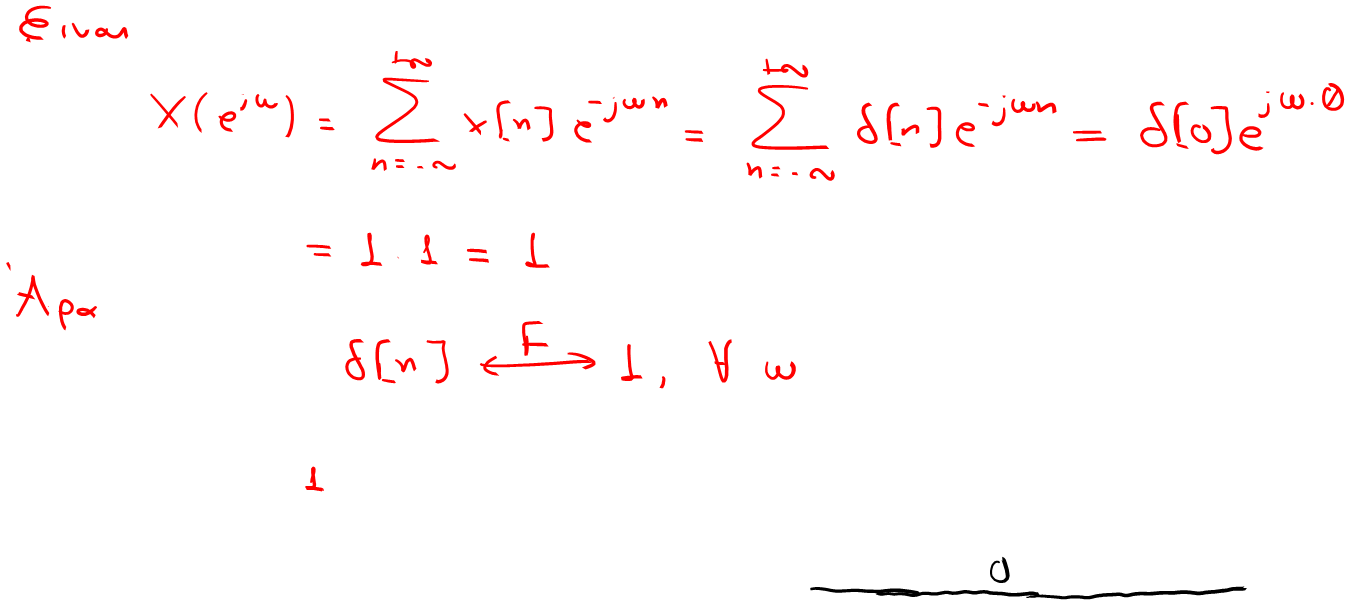 Είναι
X(e^{jω}) = \sum_{n=-∞}^{+∞} x[n] e^{-jωn} = \sum_{n=-∞}^{+∞} δ[n] e^{-jωn} = δ[0] e^{jω·0}
= 1 · 1 = 1
Άρα
δ[n] \xleftrightarrow{F} 1, ∀ ω
1
0